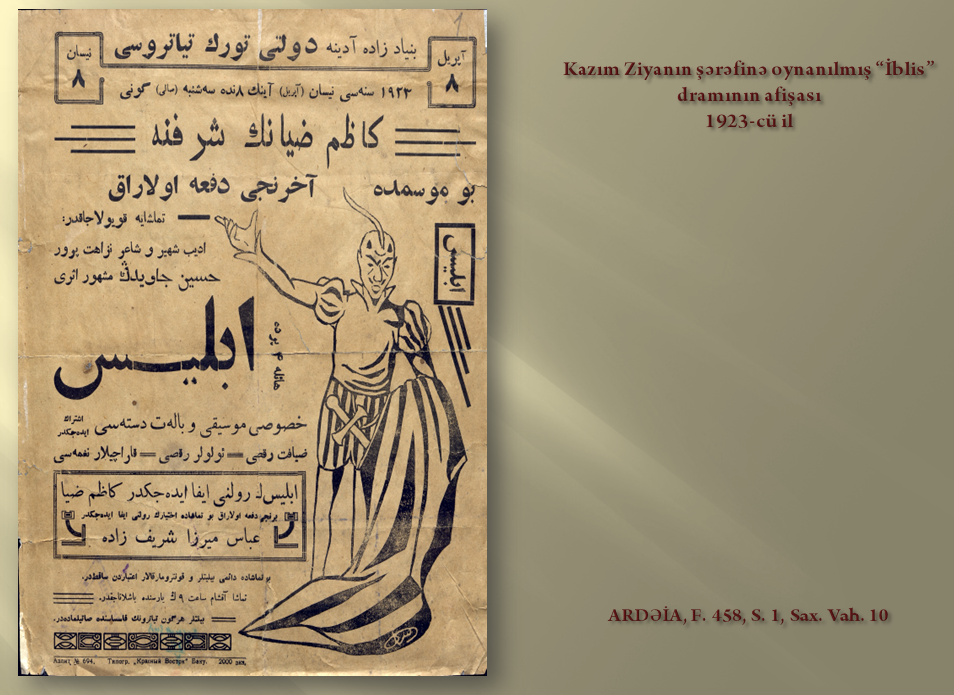 بنیاد زاده آدینه دولتی تورك تیاتروسی
نیسان ۸
آپریل ۸
۱۹۲۳ سنه‌سی نیسان (آپریل) آینك ۸نده سه‌شنبه (صالی) گونی
كاظم ضیانك شرفنه
بو موسمده آخرنجی دفعه اولاراق
تماشایه قویولاجاقدر:
ادیب شهیر و شاعر نزاهت پرور
حسین جاویدڭ مشهور اثری
ابلیس
هائله ۴ پرده
ابلیس
خصوصی موسیقی و بالەت دسته‌سی اشتراك ایده‌جكدر
ضیافت رقصی = لولولر رقصی = قاراچیلار نغمه‌سی
ابلیسڭ رولنی ایفا ایده‌جكدر كاظم ضیا
برنجی دفعه اولاراق بو تماشاده اختیارك رولنی ایفا ایده‌جكدر
عباس میرزا شریف زاده
بو تماشاده دائمی بیلیتلر و قونترومارقالار اعتباردن ساقطدر.
تماشا آقشام ساعت ۹ڭ یارسنده باشلاناجقدر.
بیلتلر هرگون تیاترونك قاسساسنده صاتیلماده‌در.
Азлит № 694. Типогр. „Красный Восток" Баку. 2000 экз.
Kazım Ziyanın şərəfinə oynanılmış “İblis”
dramının afişası
1923-cü il
ARDƏİA, F. 458, S. 1, Sax. Vah. 10